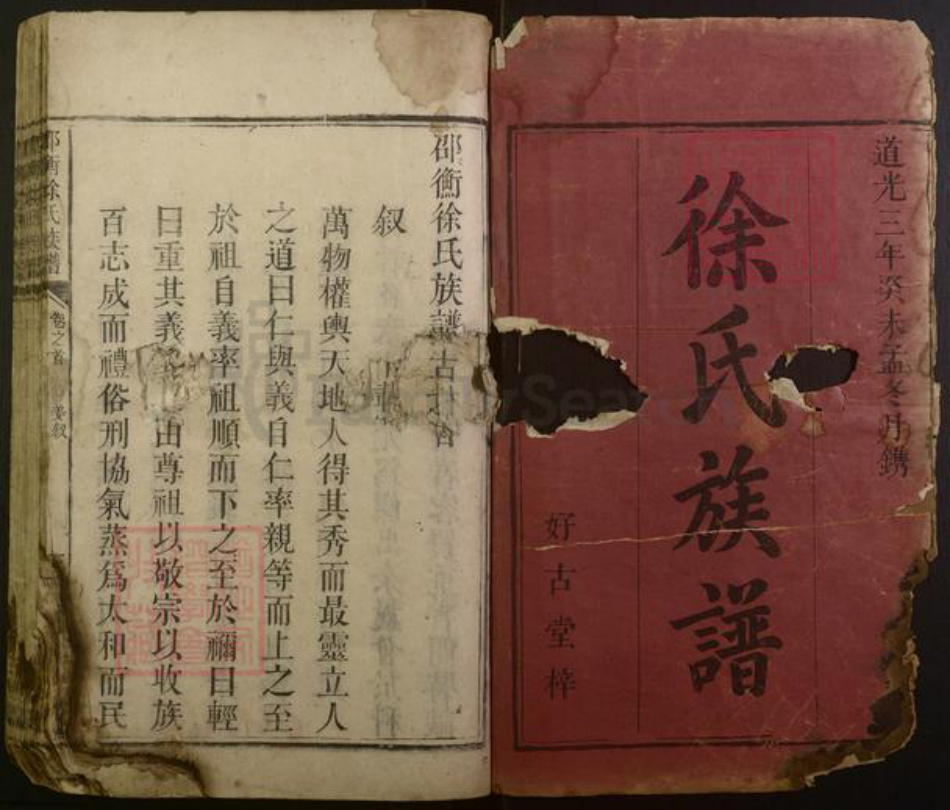 道光三年癸未孟冬月鐫
徐氏族譜
好古堂梓
邵衡徐氏族譜古
叙
萬物權輿天地人得其秀而最靈立人
之道曰仁與義自仁率親等而上之至
於祖自義率祖順而下之至於禰曰輕
曰重其義 由尊祖以敬宗以收族
百志成而禮俗刑協氣蒸爲太和而民
衡徐氏族譜
卷之首
叙
FamilySearch